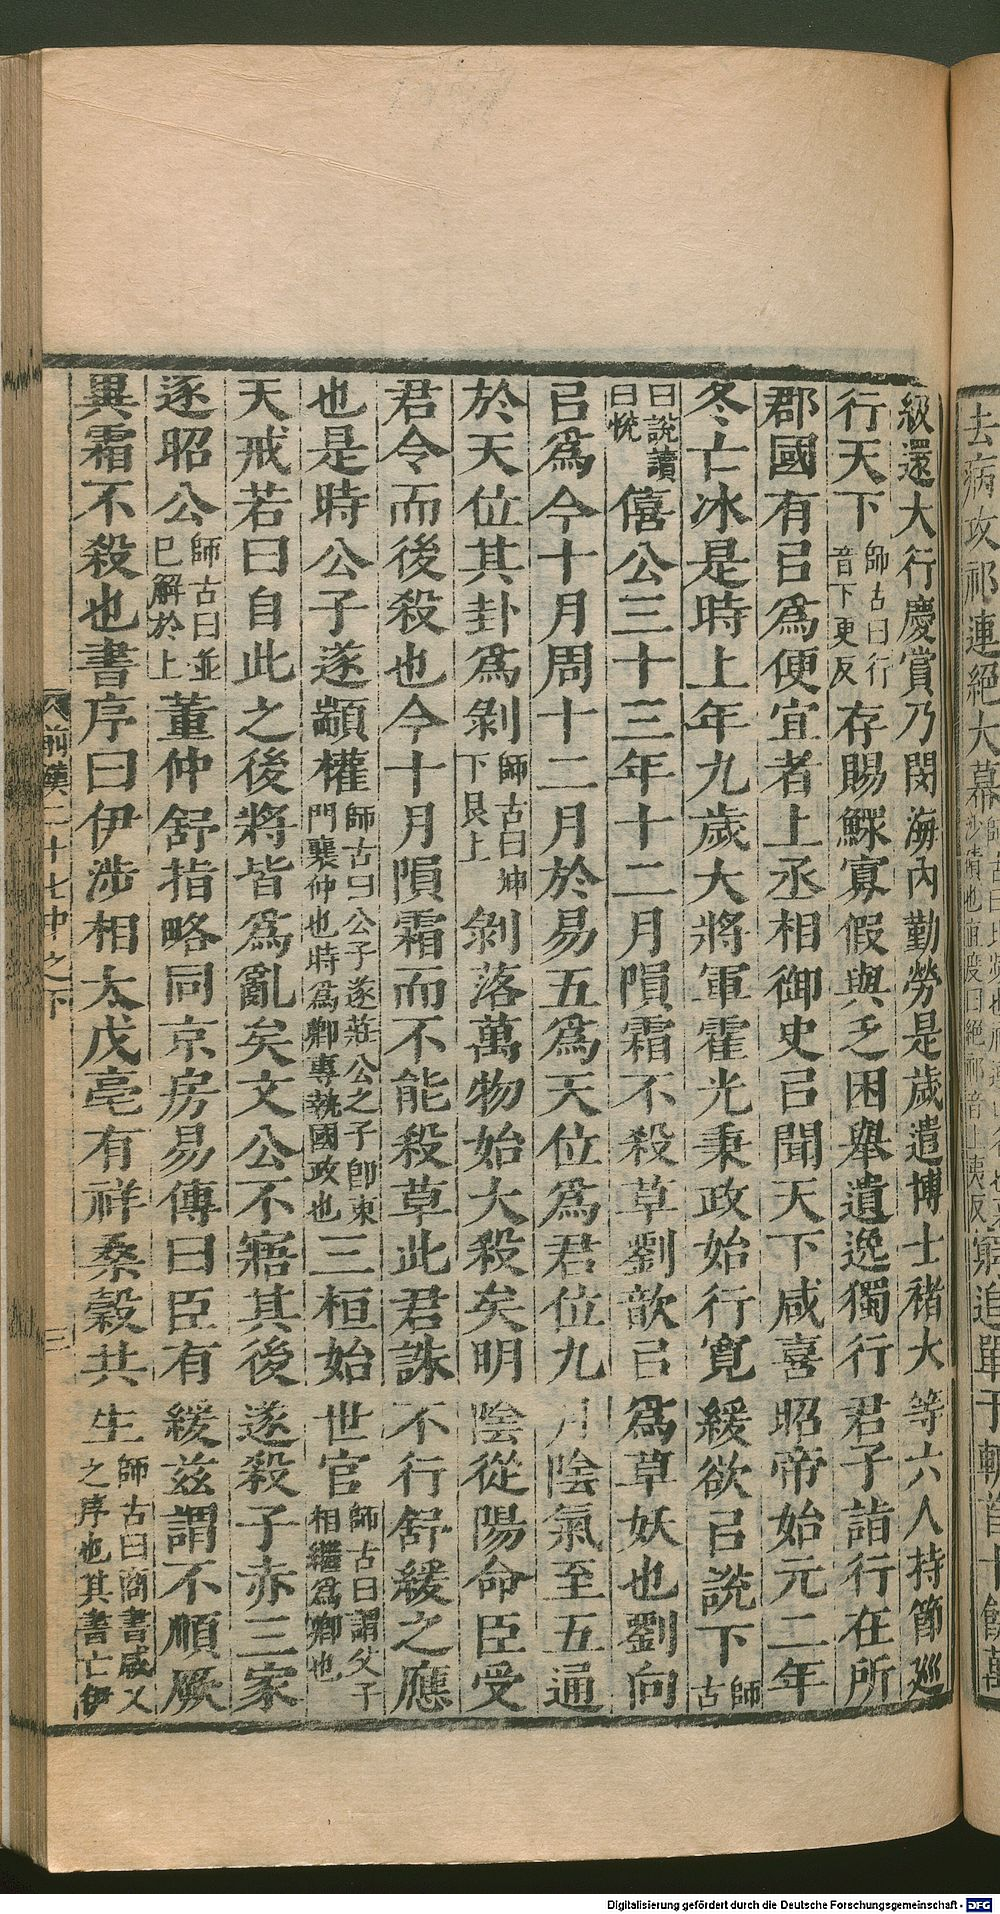 級還大行慶賞乃閔海內勤勞是歲遣博士褚大等六人持節廵
行天下師古曰行音下更反存賜鰥寡假與乏困舉遺逸獨行君子詣行在所
郡國有㠯爲便宜者上丞相御史㠯聞天下咸喜昭帝始元二年
冬亡冰是時上年九歲大將軍霍光秉政始行寬緩欲㠯說下師古
曰說讀曰悅僖公三十三年十二月隕霜不殺草劉歆㠯爲草妖也劉向
㠯爲今十月周十二月於易五爲天位爲君位九月陰氣至五通
於天位其卦爲剝師古曰坤下艮上剝落萬物始大殺矣明陰從陽命臣受
君令而後殺也今十月隕霜而不能殺草此君誅不行舒緩之應
也是時公子遂顓權師古曰公子遂莊公之子卽東門襄仲也時爲卿專執國政也三桓始世官師古曰謂父子相繼爲卿也
天戒若曰自此之後將皆爲亂矣文公不寤其後遂殺子赤三家
逐昭公師古曰並已解於上董仲舒指略同京房易傳曰臣有緩茲謂不順厥
異霜不殺也書序曰伊涉相太戊亳有祥桑榖共生師古曰商書咸乂之序也其書亡伊
前漢二十七中之下
三
去病攻祁連絕大幕
窮追單于斬首十餘萬
Digitalisierung gefördert durch die Deutsche Forschungsgemeinschaft - DFG